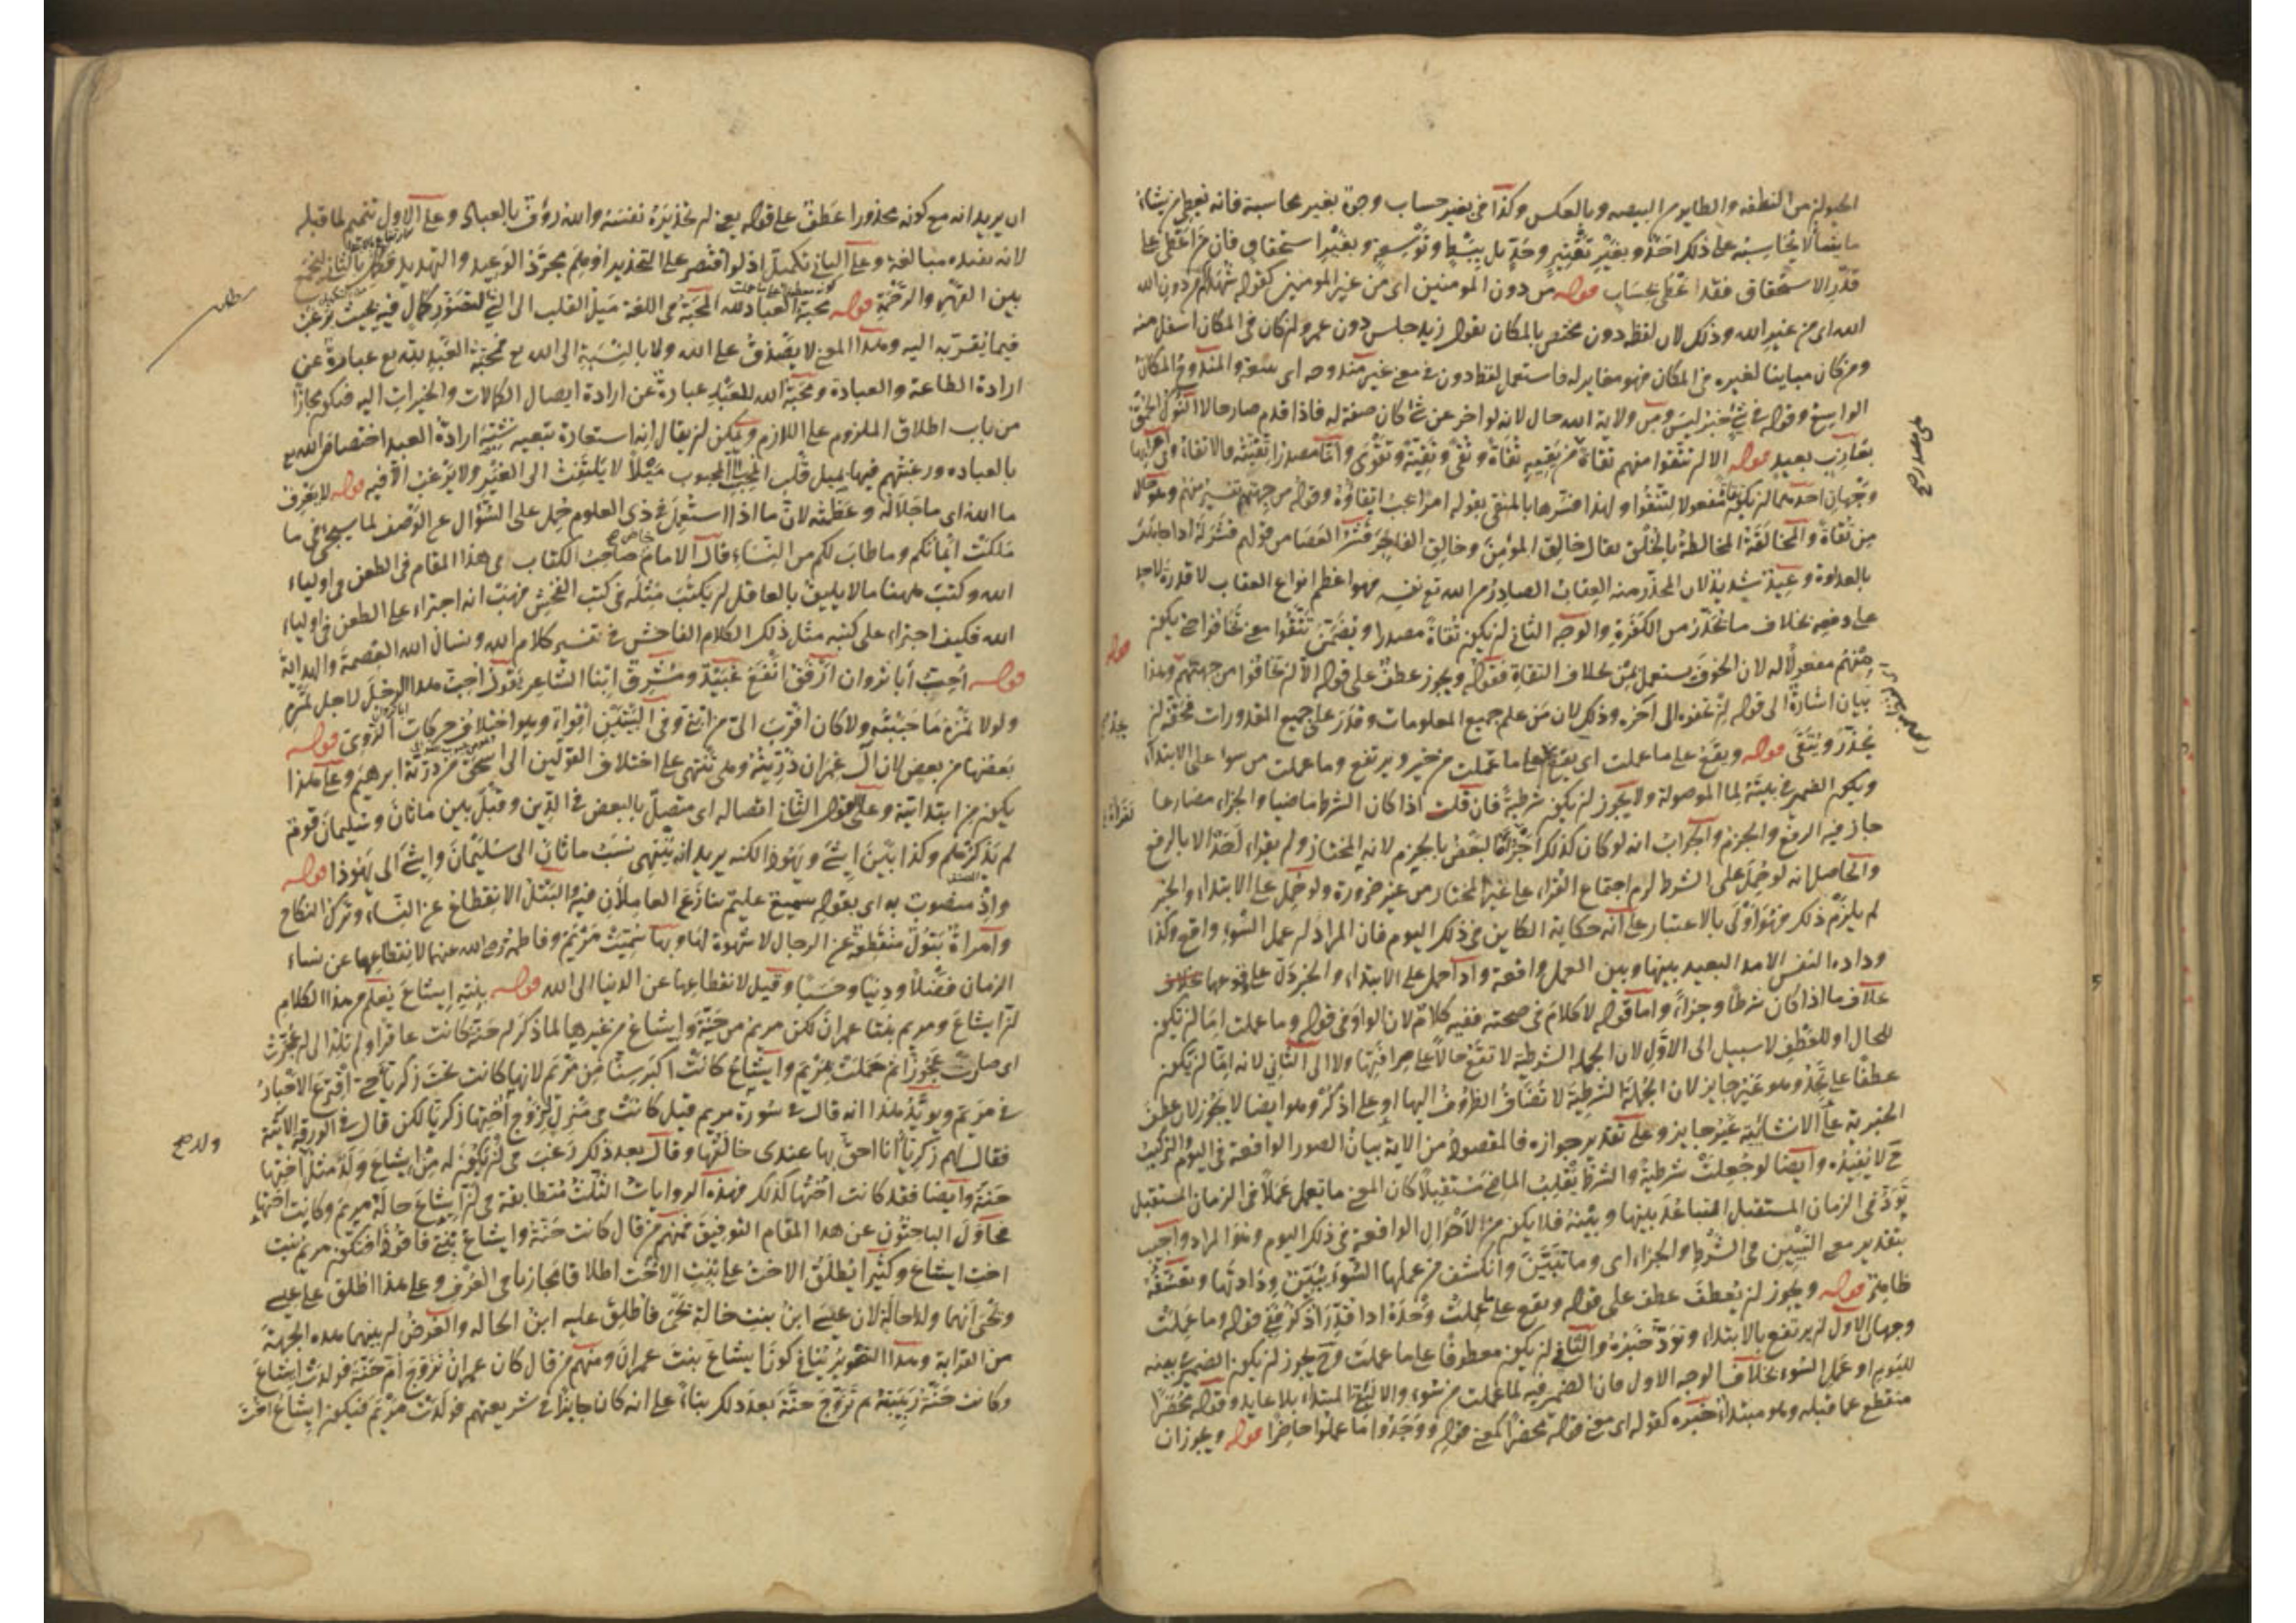 الحيوان من النطفة والطاير من البيضه وبالعكس وكذا في بغير حساب وجوه بغير محاسبة فانه يعطي من يشاء
ما يشا لا يحاسبه على ذلك احد وبغير تقتير وحد بل ببسط وتوسعة وبغير استحقاق فان من اعطى على
قدر الاستحقاق فقد اعطى بحساب قوله من دون المومنين اى من غير المومنين كقوله شهداءكم من دون الله
الله اى من غير الله وذلك لان لفظ دون مختص بالمكان تقول زيد جلس دون عمرو لمن كان في المكان اسفل منه
ومن كان مباينا لغيره في المكان فهو مغاير له فاستعمل لفظ دون في معنى غير مندوحه اى سعة والمندوح المكان
الواسع وقوله في شئ خبر ليس ومن ولاية الله حال لانه لو اخر عن شئ كان صفة له فاذا قدم صار حالا النوك الحمق
بعازب بعيد قوله الا ان تتقوا منهم تقاة من يتقيه تقاة وتقى وتقية وتقوى واتقا مصدر اتقيته والاتقاء وفي اعرابها
وجهان احدهما ان يكون مفعولا لتتقوا ولهذا فسرها بالمتقى بقوله امرا يجب اتقاؤه وقوله من جهتهم تفسير منهم وهو حال
من تقاة والمخالقة المخالطة بالخلق يقال خالق المؤمن وخالق الفاجر قشر العصا من قولهم قشر له اذا جاهره
بالعداوة وعيد شديد لان المحذر منه العقاب الصادر من الله تع نفسه فهو اعظم انواع العقاب لا قدرة لاحد
على دفعه بخلاف ما تحذر من الكفرة والوجه الثاني ان يكون تقاة مصدرا وتضمن تتقوا معنى تخافوا حتى يكون
منهم مفعولا له لان الخوف يستعمل بمن بخلاف التقاة فقوله ويجوز عطف على قوله الا ان تخافوا من جهتهم وهذا
بيان اشارة الى قوله ان تخفوه الى آخره وذلك لان من علم جميع المعلومات وقدر على جميع المقدورات فحقه ان
يحذر ويتقى قوله ويقع على ما عملت اى يقع على ما عملت من خير ويرتفع وما عملت من سوا على الابتداء
ويكون الضمير في بينه لما الموصولة ولا يجوز ان يكون شرطية فان قلت اذا كان الشرط ماضيا والجزاء مضارعا
جاز فيه الرفع والجزم والجواب انه لو كان كذلك لقرا البعض بالجزم لانه المختار ولم يقراء احد الا بالرفع
والحاصل انه لو حمل على الشرط لزم اجتماع القراء على غير المختار من غير ضرورة ولو حمل على الابتداء والخبر
لم يلزم ذلك فهو اولى بالاعتبار على انه حكاية الكاين في ذلك اليوم فان المراد ان عمل السوء واقع وكذا
وداده النفس الامد البعيد بينها وبين العمل واقعة واذا حمل على الابتداء والخبر دل على وقوعها بخلاف
خلاف ما اذا كان شرطا وجزاء واما قوله لا كلام في صحته ففيه كلام لان الواو في قوله وما عملت اما ان يكون
للحال او للعطف لا سبيل الى الاول لان الجملة الشرطية لا تقع حالا على صرافتها ولا الى الثاني لانه اما ان يكون
عطفا على تجد وهو غير جايز لان الجملة الشرطية لا تضاف الظروف اليها او على اذكر وهو ايضا لا يجوز لان عطف
الخبرية على الانشائية غير جايز وعلى تقدير جوازه فالمقصود من الاية بيان الصور الواقعة في اليوم والتركيب
ح لا يفيده وايضا لو جعلت شرطية والشرط يقلب الماضي مستقبلا كان المعنى ما تعمل عملا في الزمان المستقبل
تود في الزمان المستقبل التباعد بينها وبينه فلا يكون من الاحوال الواقعة في ذلك اليوم وهو المراد واجيب
بتقدير معنى التبيين في الشرط والجزاء اى وما تبين وانكشف من عملها السوء تبين ودادتها
قوله ويجوز ان يعطف عطف على قوله ويقع على ما عملت وحده اذا قدر اذكر ففي قوله وما عملت
وجهان الاول ان يرتفع بالابتداء وتود خبره والثاني ان يكون معطوفا على ما عملت وح يجوز ان يكون الضمير في بينه
لليوم او عمل السوء بخلاف الوجه الاول فان الضمير فيه لما عملت من سوء والا لبقى المبتداء بلا عايد وقوله محضرا
منقطع عما قبله وهو مبتدا خبره كقوله اى معنى قوله محضرا كمعنى قوله ووجدوا ما عملوا حاضرا قوله ويجوز ان
ان يريد انه مع كونه محذورا عطف على قوله يعنى ان تحذيره نفسه والله رؤف بالعباد وعلى الاول تتميم لما قبله
لانه يفيده مبالغة وعلى الثاني تكميل اذ لو اقتصر على التحذير اوهم مجرد الوعيد والتهديد فكمل بالثاني ليجمع
بين القهر والرحمة قوله محبة العباد لله المحبة في اللغة ميل القلب الى الشئ لتصور كمال فيه بحيث يرغب
فيما يقربه اليه وهذا المعنى لا يصدق على الله ولا بالنسبة الى الله تع فمحبة العبد لله تع عبارة عن
ارادة الطاعة والعبادة ومحبة الله للعبد عبارة عن ارادة ايصال الكمالات والخيرات اليه فيكون مجازا
من باب اطلاق الملزوم على اللازم ويمكن ان يقال انه استعارة تبعيه شبه ارادة العبد اختصاص الله تع
بالعباده ورغبتهم فيها بميل قلب المحب الى المحبوب ميلا لا يلتفت الى الغير ولا يرغب الا فيه قوله لا يعرف
ما الله اى ما جلاله وعظمته لان ما اذا استعمل في ذى العلوم حمل على السؤال عن الوصف لما سيجى في ما
ملكت ايمانكم وما طاب لكم من النساء قال الامام خاض صاحب الكتاب في هذا المقام في الطعن في اولياء
الله وكتب ههنا ما لا يليق بالعاقل ان يكتب مثله في كتب الفحش فهب انه اجتراء على الطعن في اولياء
الله فكيف اجتراء على كتبه مثل ذلك الكلام الفاحش في تفسير كلام الله ونسال الله العصمة والهداية
قوله احب ابا ثروان ابننا الشاعر يقول احب هذا الرجل لاجل تمره
ولولا تمره ما حببته ولا كان اقرب الى من ابنى وفي البيتين اقواء وهو اختلاف حركات الروى قوله
بعضها من بعض لان آل عمران ذرية وهي تنتهى على اختلاف القولين الى اسحق من ذرية ابرهيم وعلى هذا
يكون من ابتدائية وعلى القول الثاني اتصاله اى متصل بالبعض في الدين وقيل بين ماثان وسليمان قوم
لم يذكرهم وكذا بين ايشى ويهوذا لكنه يريد انه ينتهى نسب ماثان الى سليمان وايشى الى يهوذا قوله
واذ منصوب به اى بقوله سميع عليم تنازع العاملان فيه والتبتل الانقطاع عن النساء وترك النكاح
وامراة بتول منقطعة عن الرجال لا شهوة لها وبها سميت مريم وفاطمة رضى الله عنهما لانقطاعها عن نساء
الزمان فضلا ودينا وحسبا وقيل لانقطاعها عن الدنيا الى الله قوله بنته ايشاع يعلم من هذا الكلام
ان ايشاع ومريم بنتا عمران لكن مريم من حنة وايشاع من غيرها لما ذكر ان حنة كانت عاقرا لم تلد الى ان عجزت
اى صارت عجوزا ثم حملت مريم وايشاع كانت اكبر سنا من مريم لانها كانت تحت زكريا حتى اقترع الاحبار
في مريم ويويد هذا انه قال في سورة مريم قيل كانت في منزل زوج اختها زكريا لكن قال في الورقة الآتية
فقال لهم زكريا انا احق بها عندى خالتها وقال بعد ذلك رغب في ان يكون له من ايشاع ولد مثل اختها
حنة وايضا فقد كانت اختها كذلك فهذه الروايات الثلث متطابقة في ان ايشاع خالة مريم وكانت اختها
محاول الباحثون عن هذا المقام التوفيق فمنهم من قال كانت حنة وايشاع بنتى فاقوذ فتكون مريم بنت
اخت ايشاع وكثيرا يطلق الاخت على بنت الاخت اطلاقا مجازيا في العرف وعلى هذا اطلق على عيسى
ويحيى انهما ولدا خالة لان عيسى ابن بنت خالة يحيى فاطلق عليه ابن الخاله والغرض ان بينهما هذه الجهة
من القرابة وهذا التجويز ينافى كون ايشاع بنت عمران ومنهم من قال كان عمران تزوج ام حنة فولدت ايشاع
وكانت حنة ربيبة ثم تزوج حنة بعد ذلك بناء على انه كان جايزا في شريعتهم فولدت مريم فيكون ايشاع اخت